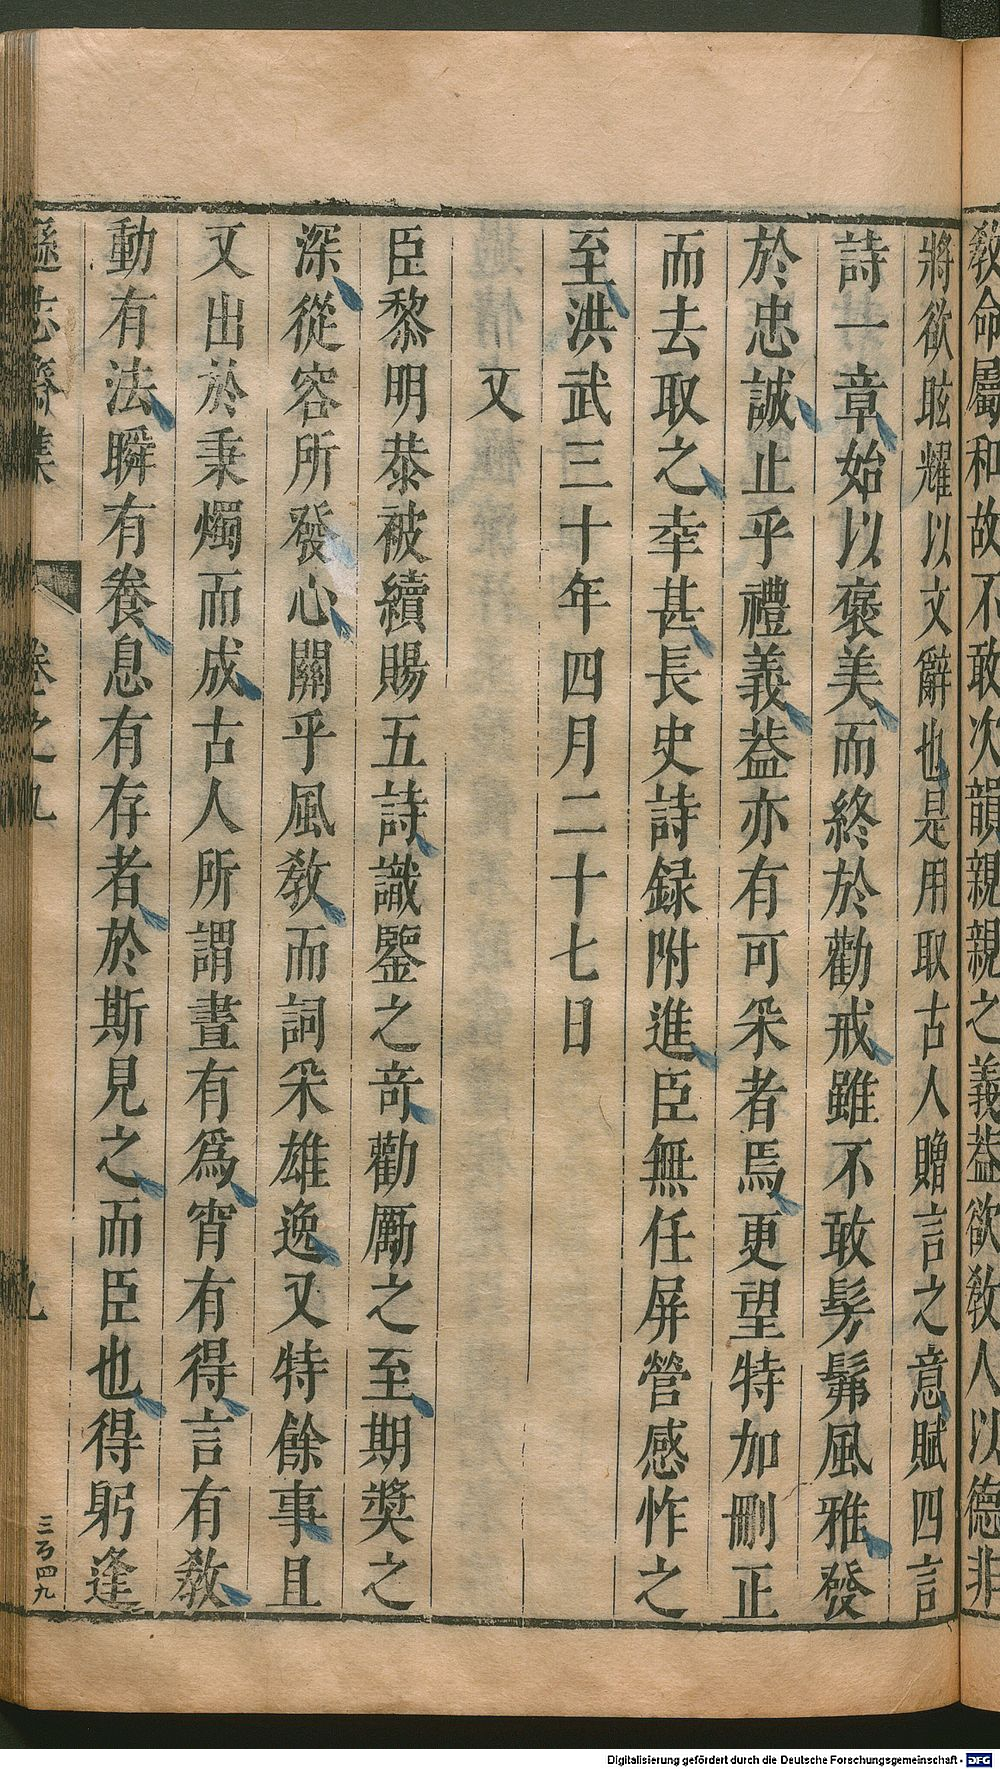 教命屬和故不敢次韻親親之義葢欲敎人以德非
將欲眩耀以文辭也是用取古人贈言之意賦四言
詩一章始以褒美而終於勸戒雖不敢髣髴風雅發
於忠誠止乎禮義葢亦有可采者焉更望特加刪正
而去取之幸甚長史詩録附進臣無任屏營感怍之
至洪武三十年四月二十七日
又
臣黎明恭被續賜五詩識鑒之竒勸厲之至期奬之
深從容所發心關乎風敎而詞采雄逸又特餘事且
又出於秉燭而成古人所謂晝有爲宵有得言有敎
動有法瞬有養息有存者於斯見之而臣也得躬逢
遜志齋集 卷之九 九
三百四九
Digitalisierung gefördert durch die Deutsche Forschungsgemeinschaft - DFG